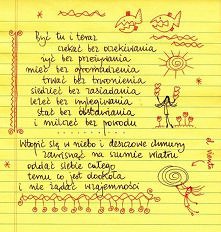 Być tu i teraz
czekać bez oczekiwania
żyć bez przeżywania
mieć bez gromadzenia
trwać bez trwonienia
siedzieć bez zasiadania
leżeć bez wylegiwania
stać bez obstawiania
i milczeć bez powodu
Wtopić się w niebo i deszczowe chmury
zawisnąć na szumie wiatru
oddać siebie całego
temu co jest dookoła
i nie żądać wzajemności